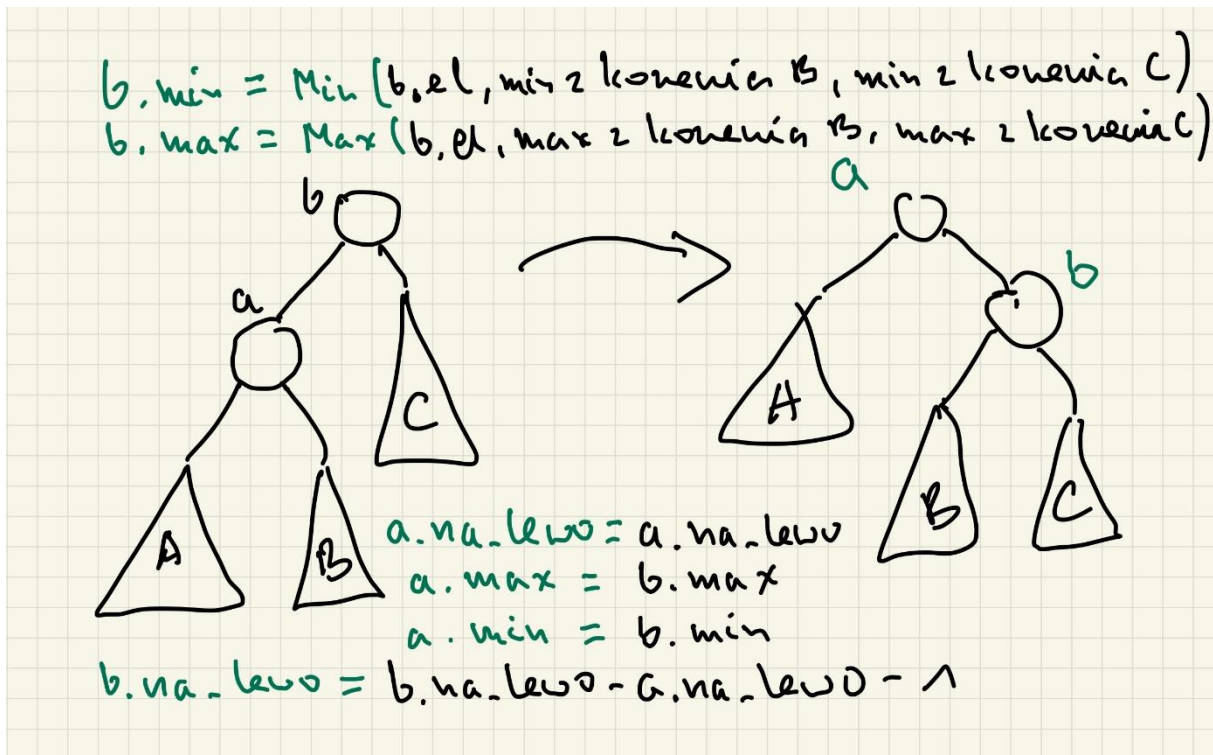 b.min = Min(b.el, min z korzenia B, min z korzenia C)
b.max = Max(b.el, max z korzenia B, max z korzenia C)
a
b
b
a
C
A
A
B
B
C
a.na_lewo = a.na_lewo
a.max = b.max
a.min = b.min
b.na_lewo = b.na_lewo - a.na_lewo - 1